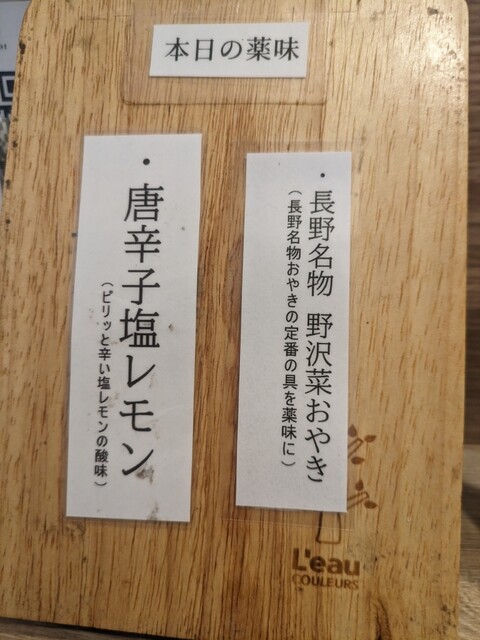 本日の薬味
・長野名物 野沢菜おやき
（長野名物おやきの定番の具を薬味に）
・唐辛子塩レモン
（ピリッと辛い塩レモンの酸味）
L'eau
COULEURS